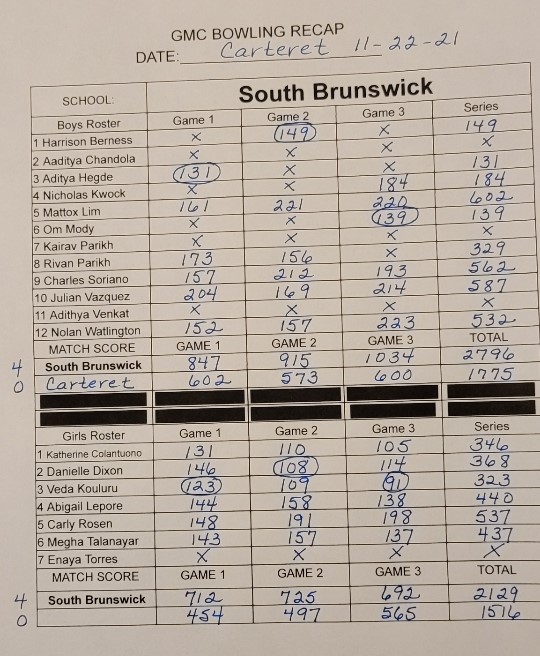 GMC BOWLING RECAP
DATE: Carteret 11-22-21
SCHOOL: South Brunswick
Boys Roster Game 1 Game 2 Game 3 Series
1 Harrison Berness X 149 X 149
2 Aaditya Chandola X X X X
3 Aditya Hegde 131 X X 131
4 Nicholas Kwock X X 184 184
5 Mattox Lim 161 221 220 602
6 Om Mody X X 139 139
7 Kairav Parikh X X X X
8 Rivan Parikh 173 156 X 329
9 Charles Soriano 157 212 193 562
10 Julian Vazquez 204 169 214 587
11 Adithya Venkat X X X X
12 Nolan Watlington 152 157 223 532
MATCH SCORE GAME 1 GAME 2 GAME 3 TOTAL
4 South Brunswick 847 915 1034 2796
0 Carteret 602 573 600 1775
Girls Roster Game 1 Game 2 Game 3 Series
1 Katherine Colantuono 131 110 105 346
2 Danielle Dixon 146 108 114 368
3 Veda Kouluru 123 109 91 323
4 Abigail Lepore 144 158 138 440
5 Carly Rosen 148 191 198 537
6 Megha Talanayar 143 157 137 437
7 Enaya Torres X X X X
MATCH SCORE GAME 1 GAME 2 GAME 3 TOTAL
4 South Brunswick 712 725 692 2129
0 454 497 565 1516